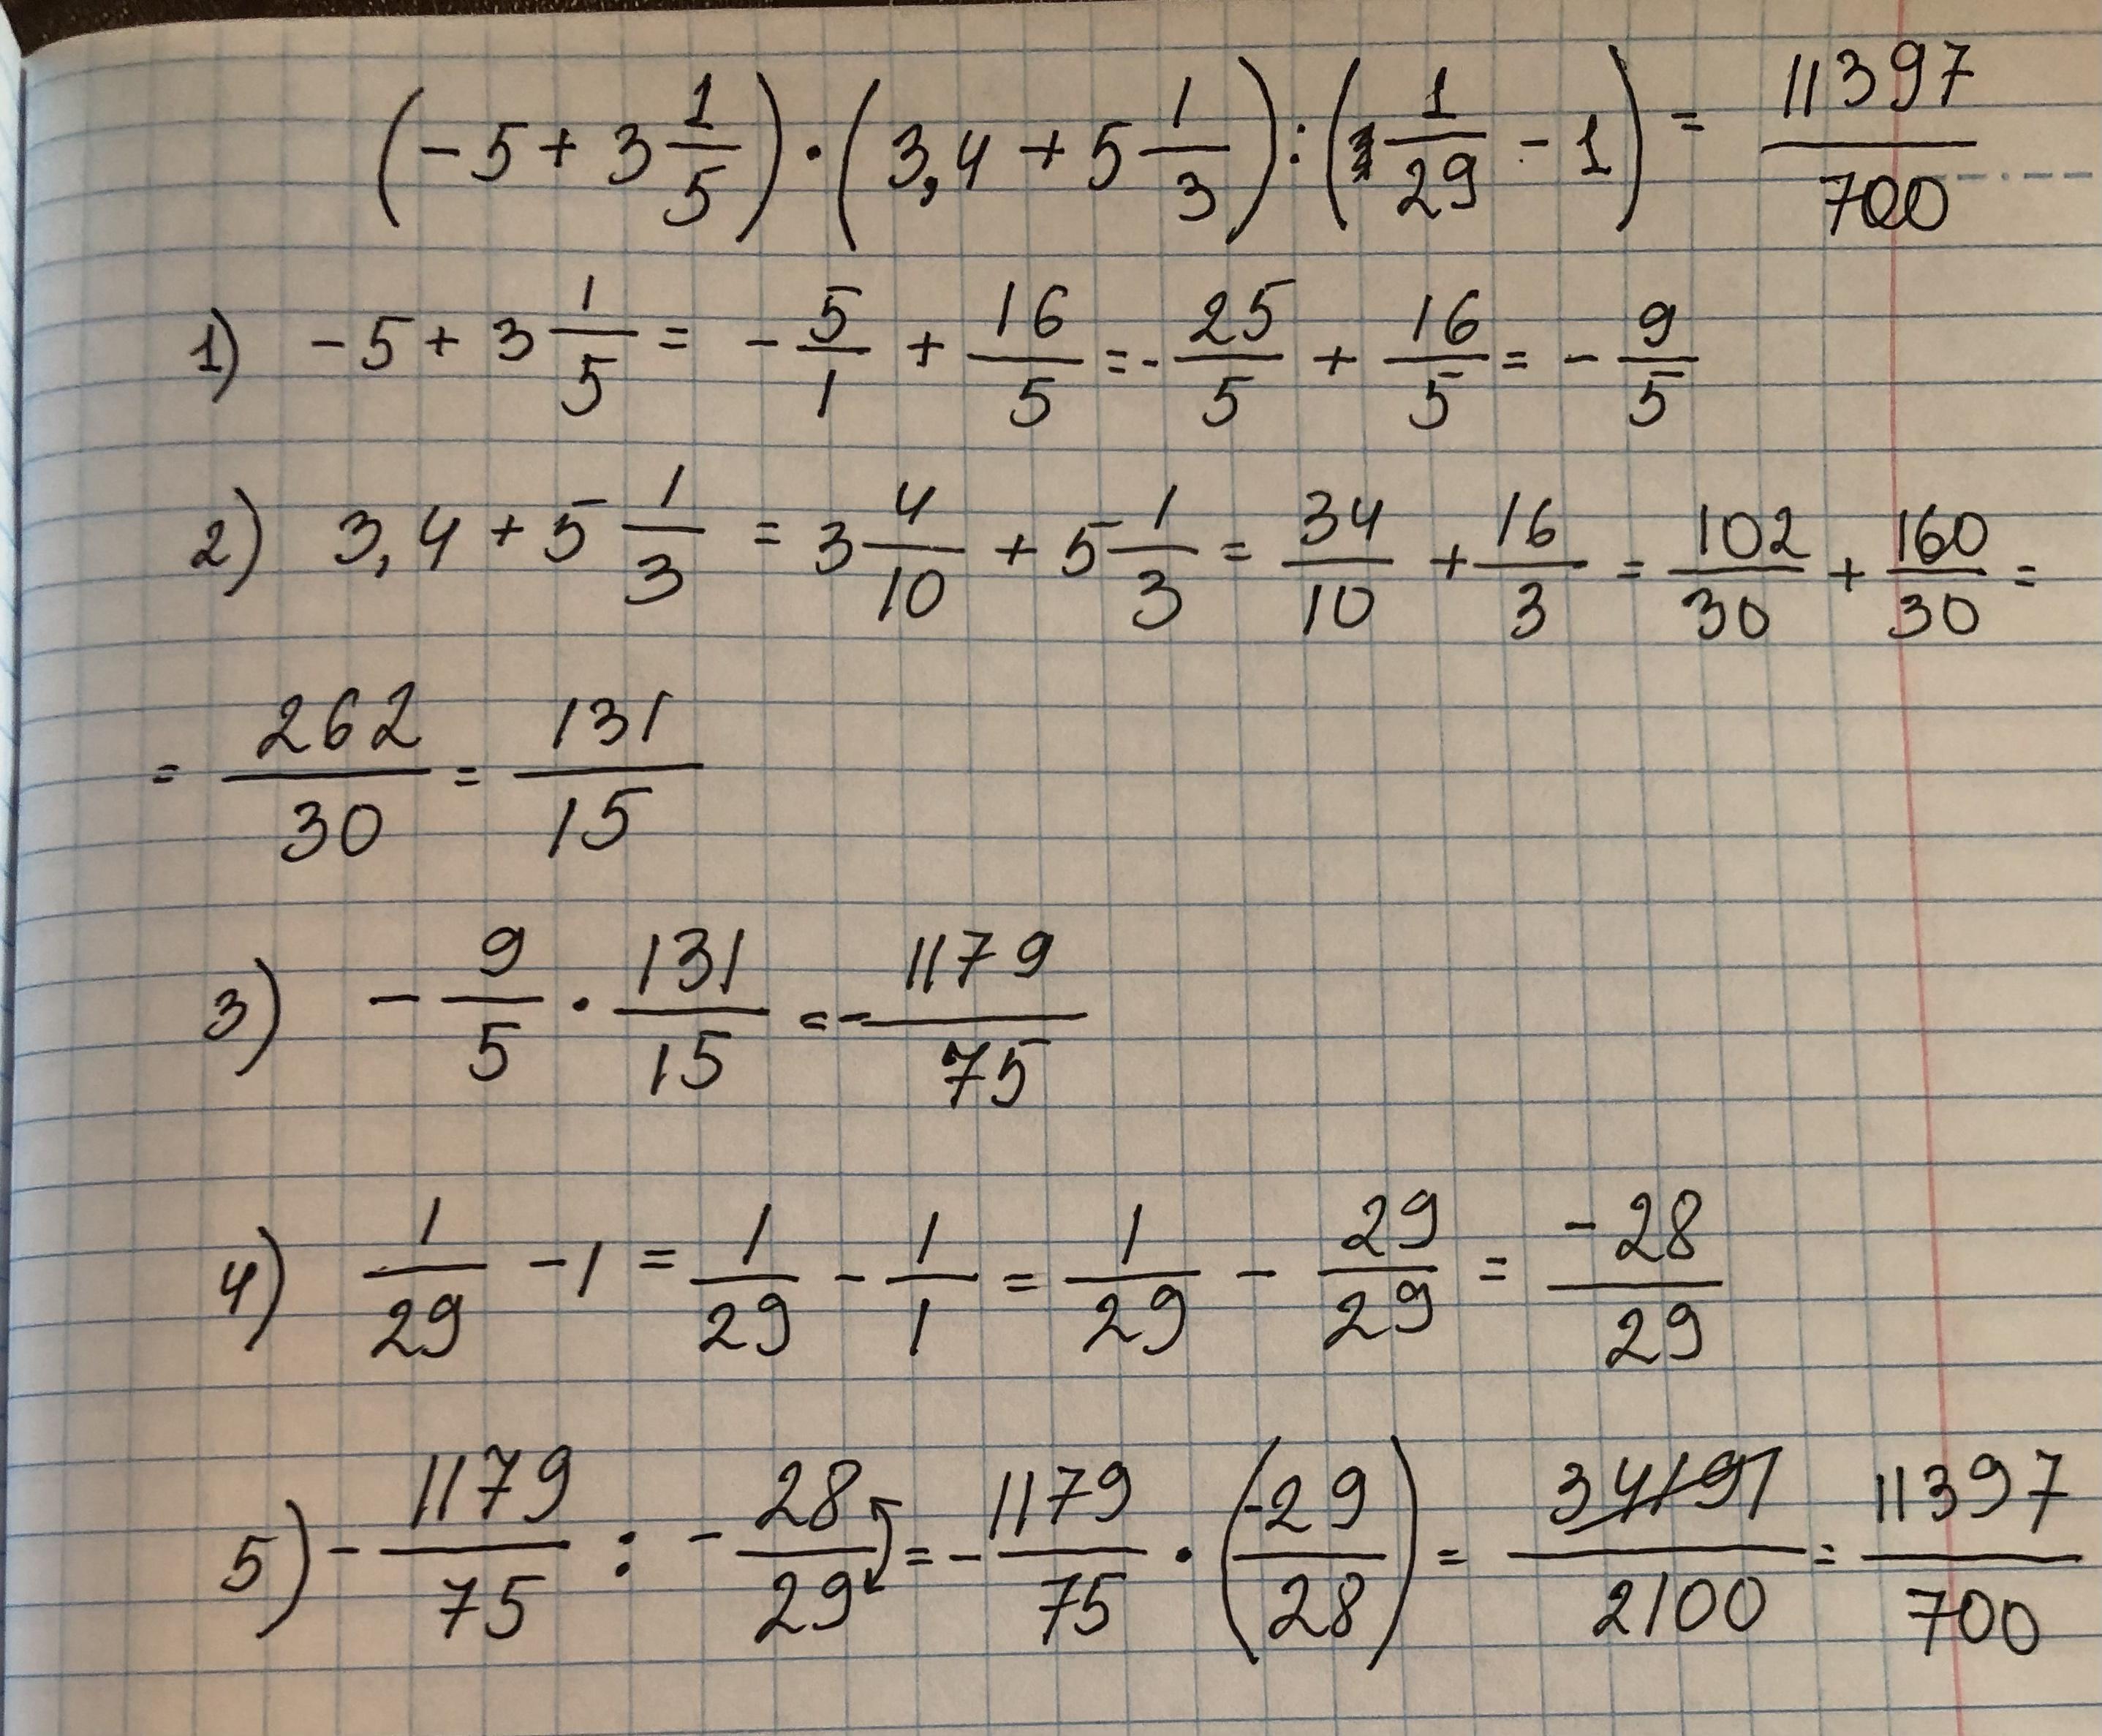 (-5 + 3 1/5) · (3,4 + 5 1/3) : (1/29 - 1) = 11397/700
1) -5 + 3 1/5 = - 5/1 + 16/5 = - 25/5 + 16/5 = - 9/5
2) 3,4 + 5 1/3 = 3 4/10 + 5 1/3 = 34/10 + 16/3 = 102/30 + 160/30 =
= 262/30 = 131/15
3) - 9/5 · 131/15 = - 1179/75
4) 1/29 - 1 = 1/29 - 1/1 = 1/29 - 29/29 = -28/29
5) - 1179/75 : - 28/29 = - 1179/75 · (-29/28) = 34191/2100 = 11397/700